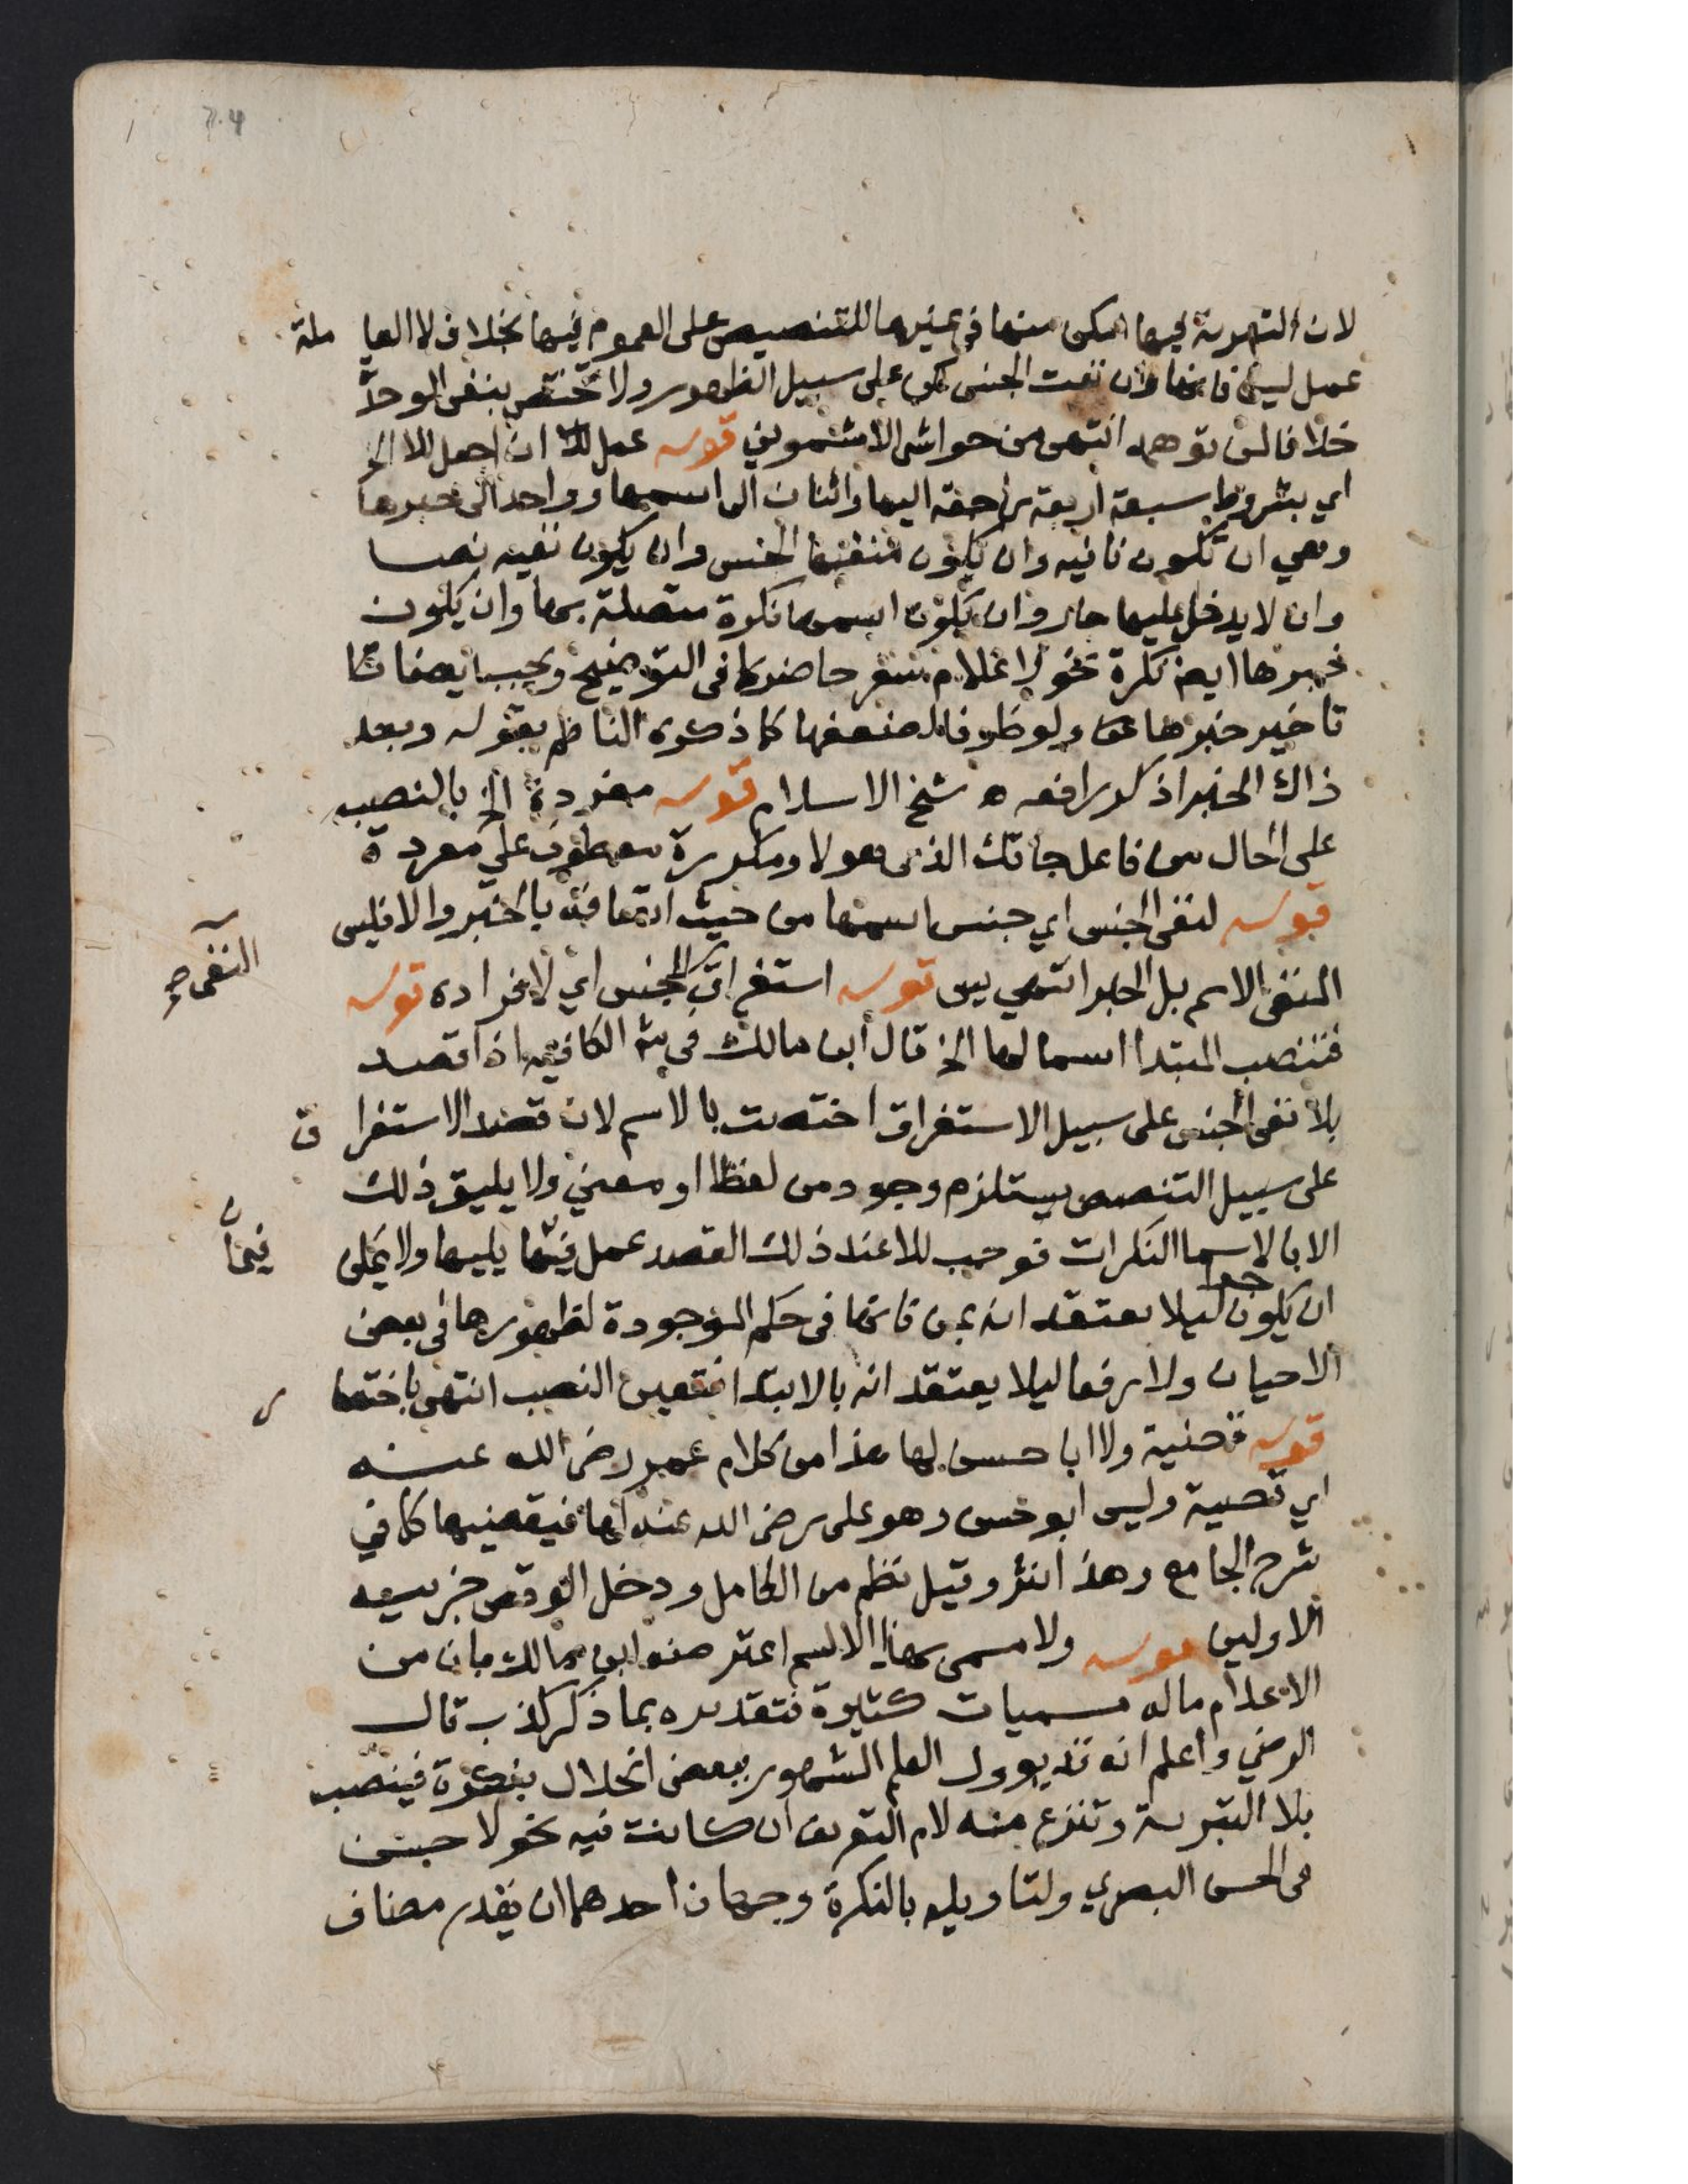 لان التبرية فيها امكن منها في غيرها للتنصيص على العموم فيها بخلاف لا العاملة
عمل ليس فانها وان نفت الجنس لكن على سبيل الظهور ولا تختص بنفي الوحدة
خلافا لمن توهمه انتهى من حواشي الاشموني قوله عمل ان اجعل للا الخ
اي بشروط سبعة اربعة راجعة اليها واثنان الى اسمها وواحد الى خبرها
وهي ان تكون نافيه وان يكون منفيها الجنس وان يكون نفيه نصا
وان لا يدخل عليها جار وان يكون اسمها نكرة متصلة بها وان يكون
خبرها ايضا نكرة نحو لا غلام سفر حاضر كما في التوضيح ويجب ايضا
تاخير خبرها عن ولو ظرفا لضعفها كما ذكره الناظم بقوله وبعد
ذاك الخبر اذكر رافعه ه شيخ الاسلام قوله مفردة الخ بالنصب
على الحال من فاعل جاءتك الذي هو لا ومكررة معطوف على مفردة
قوله لنفي الجنس اي جنس اسمها من حيث اتصافه بالخبر والا فليس
النفي صح
المنفي الاسم بل الخبر انتهى يس قوله استغراق الجنس اي لافراده قوله
فتنصب المبتدا اسما لها الخ قال ابن مالك في شرح الكافيه اذا قصد
بلا نفي الجنس على سبيل الاستغراق اختصت بالاسم لان قصد الاستغراق
على سبيل التنصيص يستلزم وجود من لفظا او معنى ولا يليق ذلك
الا بالاسما النكرات فوجب للا عند ذلك القصد عمل فيما يليها ولا يخلى
فيما
ان يكون جرا ليلا يعتقد انه بمن فانها في حكم الموجودة لظهورها في بعض
الاحيان ولا رفعا ليلا يعتقد انه بالابتدا فتعين النصب انتهى باختصار
قوله قضية ولا ابا حسن لها هذا من كلام عمر رضي الله عنه
اي قضية وليس ابو حسن وهو علي رضي الله عنه لها فيقضيها كما في
شرح الجامع وهذا نثر وقيل نظم من الكامل ودخل الوقص جزييه
الاولين قوله ولا مسمى بهذا الاسم اعترضه ابن مالك بان من
الاعلام ماله مسميات كثيرة فتقديره بما ذكر كذب قال
الرضي واعلم انه قد يوول العلم المشهور ببعض الخلال بنكرة فينصب
بلا التبرية وتنزع منه لام التعريف ان كانت فيه نحو لا حسن
في الحسن البصري ولتاويله بالنكرة وجهان احدهما ان يقدر مضاف